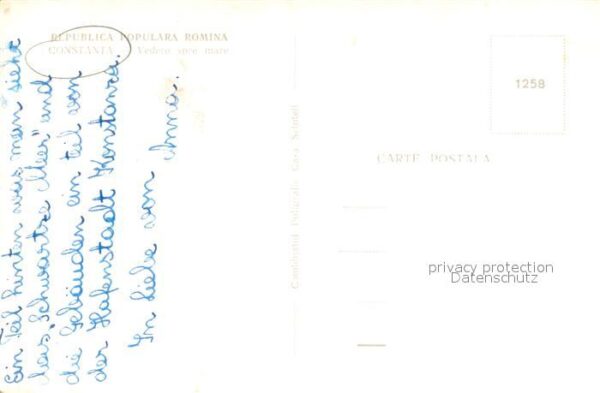 REPUBLICA POPULARA ROMINA
CONSTANTA Vedere spre mare
Ein Teil hinten wo man sieht
das "Schwartze Meer" und
die Gebäuden ein teil von
der Hafenstadt Konstanza.
In Liebe von Anna.
Combinatul Poligrafic Casa Scînteii
1258
CARTE POSTALA
privacy protection
Datenschutz